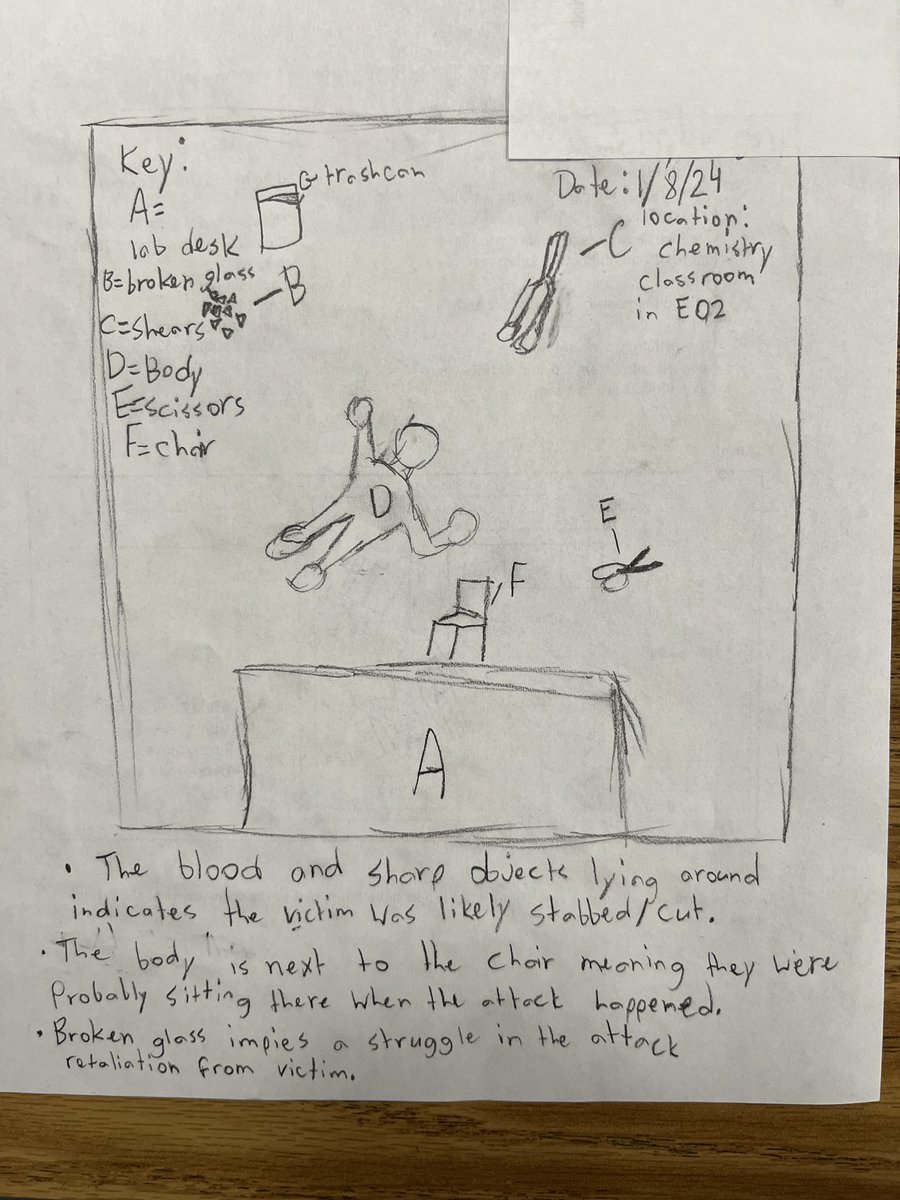 Key:
A=
lab desk
B=broken glass
C=shears
D=Body
E=scissors
F=chair
G trashcan
B
Date: 1/8/24
location:
chemistry
classroom
in E02
C
D
E
F
A
• The blood and sharp objects lying around
indicates the victim was likely stabbed/cut.
• The body is next to the chair meaning they were
Probably sitting there when the attack happened.
• Broken glass impies a struggle in the attack
retaliation from victim.